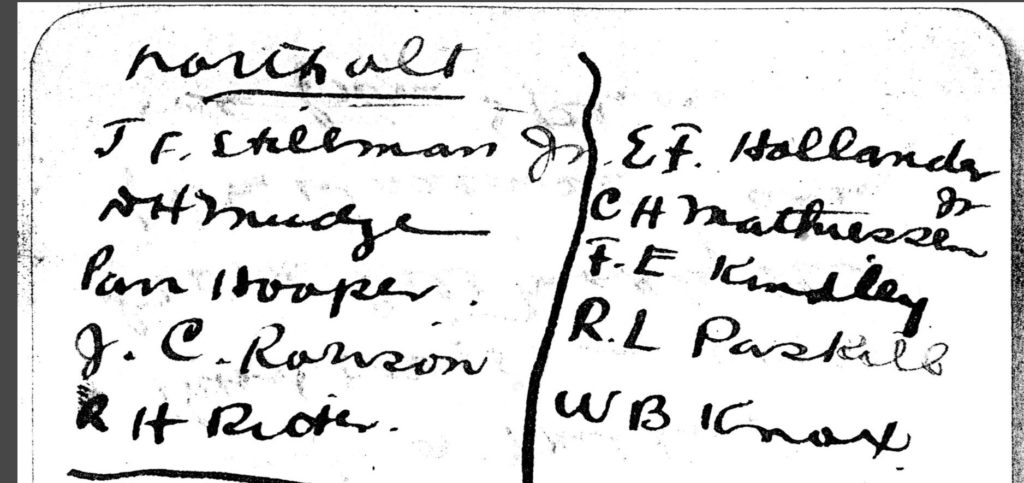 Northolt
J F. Stillman Jr.
D H Mudge
Parr Hooper.
J. C. Rorison
R H Ritter.
E F. Hollander
C H Mathiessen Jr
F. E Kindley
R. L Paskill
W B Knox